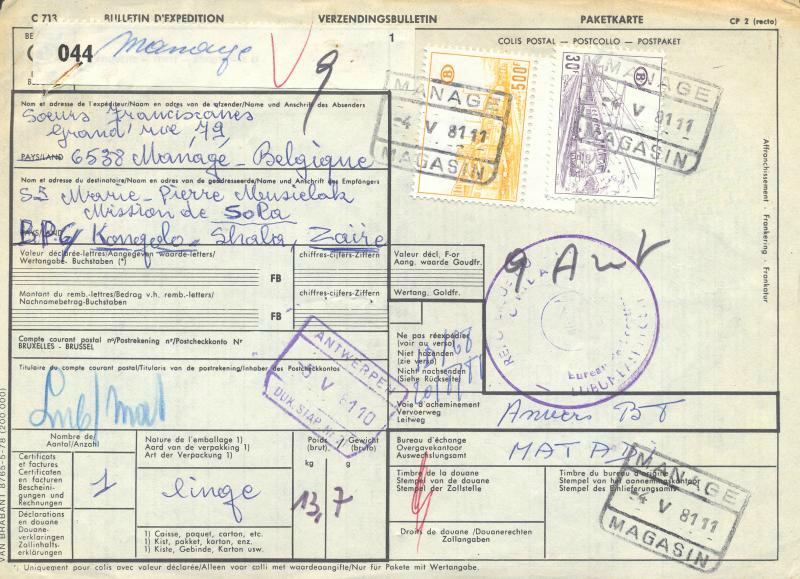 C 713 BULLETIN D'EXPEDITION VERZENDINGSBULLETIN PAKETKARTE CP 2 (recto)
044 Manage
9
1
COLIS POSTAL — POSTCOLLO — POSTPAKET
B 500F
30F B
MANAGE
-4 V 81 11
MAGASIN
MANAGE
-4 V 81 11
MAGASIN
Nom et adresse de l'expéditeur/Naam en adres van de afzender/Name und Anschrift des Absenders
Soeurs Franciscanes
Grand'rue 79
PAYS/LAND 6538 Manage - Belgique
Nom et adresse du destinataire/Naam en adres van de geadresseerde/Name und Anschrift des Empfängers
Marie-Pierre Musielak
Mission de Sola
PAYS/LAND
B.P. 6/ Kongolo - Shaba, Zaïre
Affranchissement - Frankering - Frankatur
Valeur déclarée-lettres/Aangegeven waarde-letters/
Wertangabe- Buchstaben (*)
chiffres-cijfers-Ziffern
FB
Valeur décl. F-or
Aang. waarde Goudfr.
Wertang. Goldfr.
Montant du remb.-lettres/Bedrag v.h. remb.-letters/
Nachnahmebetrag-Buchstaben
chiffres-cijfers-Ziffern
FB
9 Ant
Compte courant postal nº/Postrekening nr/Postscheckkonto Nr
BRUXELLES - BRUSSEL
Ne pas réexpédier
(voir au verso)
Niet nazenden
(zie verso)
Nicht nachsenden
(Siehe Rückseite)
Titulaire du compte courant postal/Titularis van de postrekening/Inhaber des Postscheckkontos
ANTWERPEN
V 81 10
Lub/mat
Voie d'acheminement
Vervoerweg
Leitweg
Anvers BT
Nombre de
Aantal/Anzahl
Nature de l'emballage 1)
Aard van de verpakking 1)
Art der Verpackung 1)
Poids (brut).
Gewicht (bruto)
kg
g
Bureau d'échange
Overgavekantoor
Auswechslungsamt
MATADI
Certificats
et factures
Certificaten
en facturen
Bescheini-
gungen und
Rechnungen
1
linge
13,7
Timbre de la douane
Stempel van de douane
Stempel der Zollstelle
Timbre du bureau d'origine
Stempel van het aannemingskantoor
Stempel des Einlieferungsamts
MANAGE
-4 V 81 11
MAGASIN
Déclarations
en douane
Douane-
verklaringen
Zollinhalts-
erklärungen
1) Caisse, paquet, carton, etc.
1) Kist, pakket, karton, enz.
1) Kiste, Gebinde, Karton usw.
Droits de douane/Douanerechten
Zollangaben
VAN BRABANT 8765-5-78 (200 000)
*) Uniquement pour colis avec valeur déclarée/Alleen voor colli met waardeaangifte/Nur für Pakete mit Wertangabe.